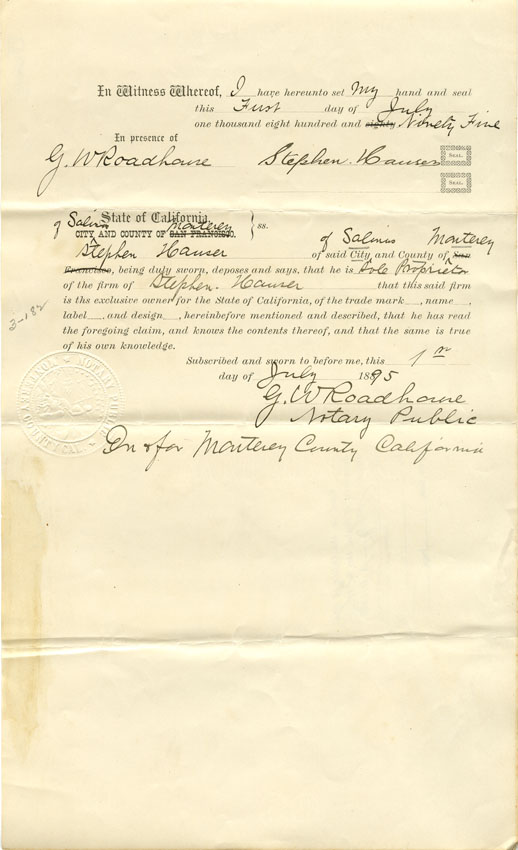 In Witness Whereof, I have hereunto set My hand and seal
this First day of July
one thousand eight hundred and eighty Ninety Five
In presence of
G. W Roadhouse Stephen. Hauser SEAL.
SEAL.
State of California,
of Salinas Monterey
CITY AND COUNTY OF SAN FRANCISCO. } ss.
Stephen Hauser of Salinas Monterey
of said City, and County of San
Francisco, being duly sworn, deposes and says, that he is Sole Proprietor
of the firm of Stephen. Hauser that this said firm
is the exclusive owner for the State of California, of the trade mark , name ,
label , and design , hereinbefore mentioned and described, that he has read
the foregoing claim, and knows the contents thereof, and that the same is true
of his own knowledge.
3-182
Subscribed and sworn to before me, this 1st
day of July 1895
G. W Roadhouse
Notary Public
In & for Monterey County California